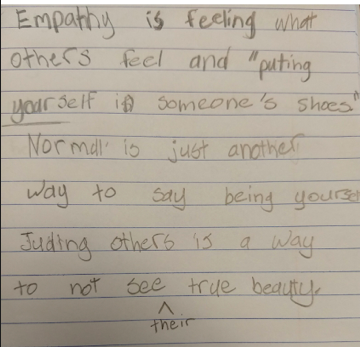 Empathy is feeling what
others feel and "puting
yourself in someone's shoes"
Normal is just another
way to say being yourse
Juding others is a way
to not see true beauty.
^
their